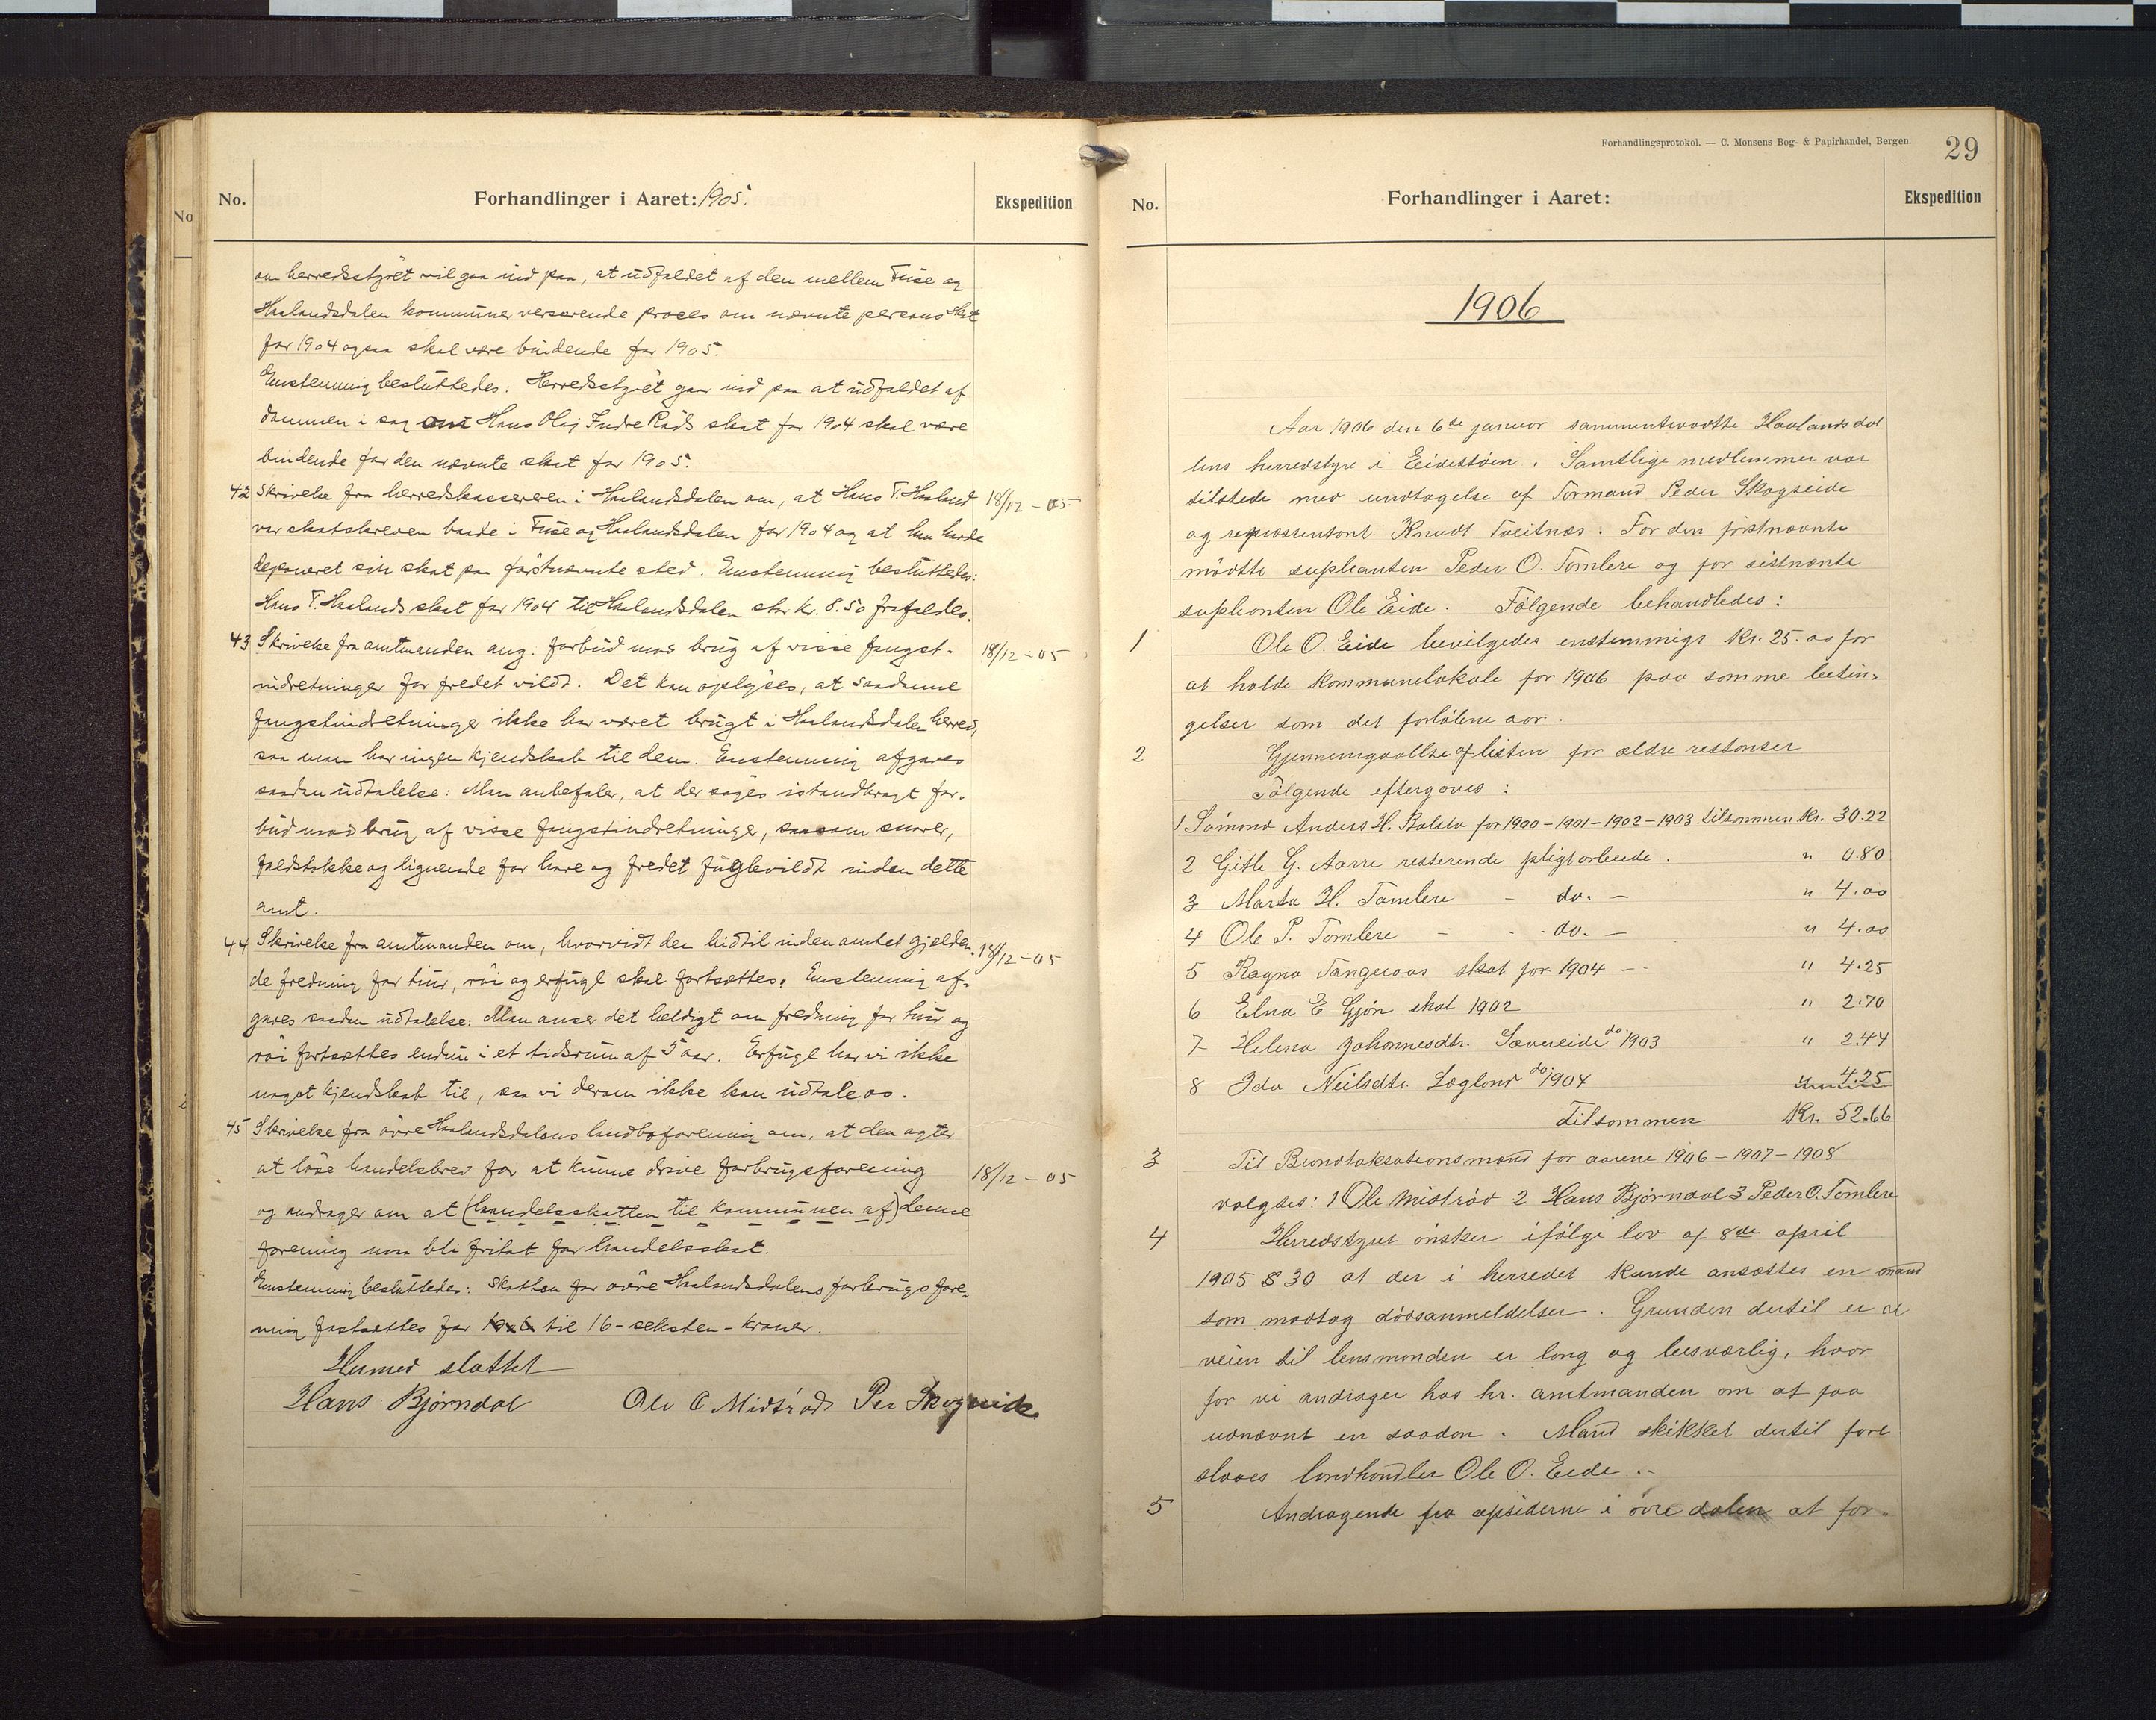 No.
Forhandlinger i Aaret: 1905.
Ekspedition
om herredsstyret vil gaa ind paa, at udfaldet af den mellem Fuse og
Haalandsdalen kommuner verserende proces om nævnte persons skat
for 1904 ogsaa skal være bindende for 1905.
Enstemmig besluttedes: Herredsstyret gaar ind paa at udfaldet af
dommen i sag om Hans Olaj Indre Röds skat for 1904 skal være
bindende for den nævnte skat for 1905.
42 Skrivelse fra herredskassereren i Haalandsdalen om, at Hans T. Haaland 18/12 - 05
var skatskreven baade i Fuse og Haalandsdalen for 1904 og at han havde
deponeret sin skat paa førstnævnte sted. Enstemmig besluttedes:
Hans T. Haalands skat for 1904 til Haalandsdalen stor kr. 8.50 frafaldes.
43 Skrivelse fra amtmanden ang. forbud mod brug af visse fangst- 18/12 - 05
indretninger for fredet vildt. Det kan oplyses, at saadanne
fangstindretninger ikke har været brugt i Haalandsdalen herred,
saa man har ingen kjendskab til dem. Enstemmig afgaves
saadan udtalelse: Man anbefaler, at der søges istandbragt for-
bud mod brug af visse fangstindretninger, saasom snarer,
faldstokke og lignende for hare og fredet fuglevildt inden dette
amt.
44 Skrivelse fra amtmanden om, hvorvidt den hidtil inden amtet gjelden- 18/12 - 05
de fredning for tiur, röi og erfugl skal fortsættes. Enstemmig af-
gaves saadan udtalelse: Man anser det heldigt om fredning for tiur og
röi fortsættes endnu i et tidsrum af 5 aar. Erfugl har vi ikke
noget kjendskab til, saa vi derom ikke kan udtale os.
45 Skrivelse fra övre Haalandsdalens landboforening om, at den agter
at löse handelsbrev for at kunne drive forbrugsforening 18/12 - 05
og andrager om at (handelsskatten til kommunen af) denne
forening maa bli fritat for handelsskat.
Enstemmig besluttedes: Skatten for övre Haalandsdalens forbrugsfore-
ning fastsættes for 1906 til 16 - seksten - kroner.
Hermed sluttet
Hans Bjørndal Ole O Midtröd Per Skogseide
Forhandlingsprotokol. — C. Monsens Bog- & Papirhandel, Bergen.
29
No.
Forhandlinger i Aaret:
Ekspedition
1906
Aar 1906 den 6te januar sammentraadte Haalandsdal
lens herredstyre i Eidestöen. Samtlige medlemmer var
tilstede med undtagelse af Formand Peder Skogseide
og repræsentant Knudt Tveitnæs. For den förstnævnte
mödtte suplianten Peder O. Tömlere og for sistnænte
suplianten Ole Eide. Fölgende behandledes:
1 Ole O. Eide bevilgedes enstemmigt Kr. 25.00 for
at holde kommunelokale for 1906 paa somme betin-
gelser som det forlöbne aar.
2 Gjennemgaaelse af listen for ældre restanser
Fölgende eftergaves:
1 Sömond Anders H. Bolsta for 1900-1901-1902-1903 tilsammen Kr. 30.22
2 Gitle G. Aarre resterende pligtarbeide. " 0.80
3 Marta H. Tömlere - do. - " 4.00
4 Ole P. Tömlere - - do. - " 4.00
5 Ragna Tangeraas skat for 1904 - - " 4.25
6 Elna E Gjön skat 1902 " 2.70
7 Helena Johannesdtr. Sævereide do. 1903 " 2.44
8 Ida Neilsdtr. Lægland do. 1904 " 4.25
Tilsammen Kr. 52.66
3 Til Brandtaksationsmænd for aarene 1906-1907-1908
valgtes: 1 Ole Midtröd 2 Hans Bjørndal 3 Peder O. Tömlere
4 Herredstyret önsker ifölge lov af 8de april
1905 § 30 at der i herredet kunde ansættes en mand
som modtog dödsanmeldelser. Grunden dertil er at
veien til lensmanden er lang og besværlig, hvor
for vi andrager hos hr. amtmanden om at faa
udnævnt en saadan. Mand skikket dertil fore
slaaes landhandler Ole O. Eide.
5 Andragende fra opsiderne i övre dalen at for-